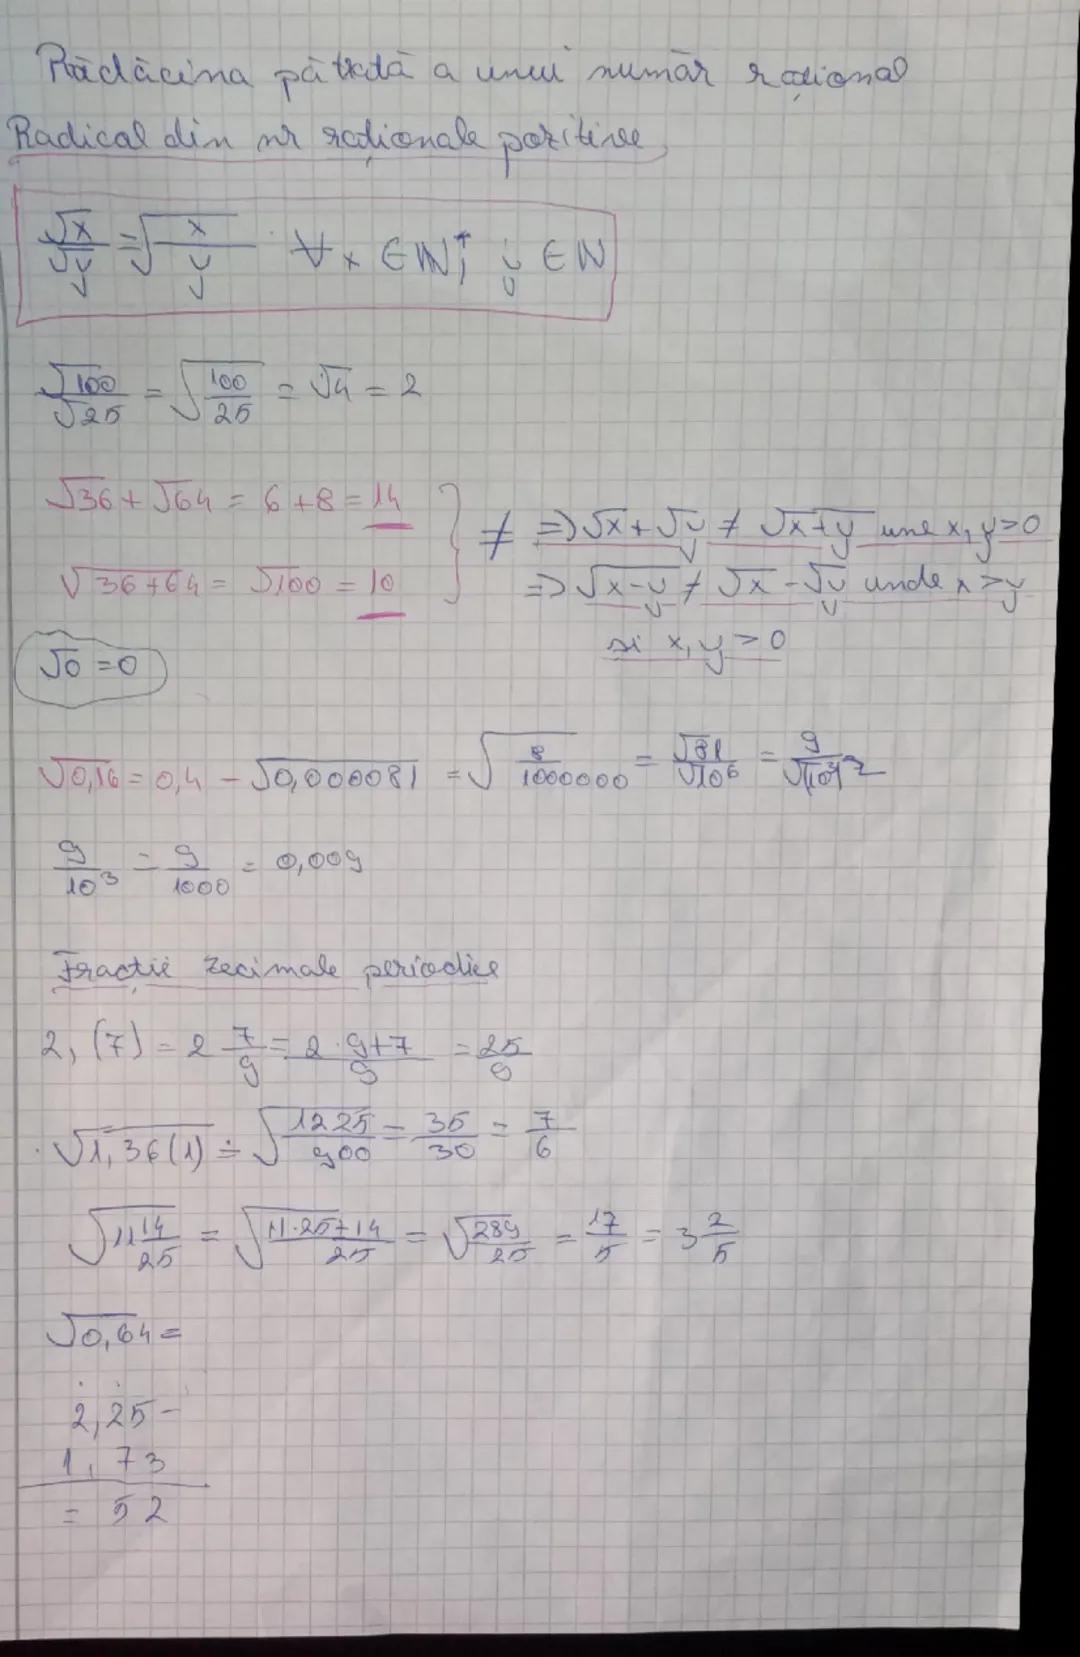 Rădăcina pătrată a unui număr rațional
Radical din nr raționale pozitive
√x/√y = √(x/y) ∀x ∈ N*, y ∈ N
√100/√25 = √(100/25) = √4 = 2
√36 + √64 = 6 + 8 = 14
√(36+64) = √100 = 10
≠ => √x + √y ≠ √(x+y) une x, y > 0
=> √(x-y) ≠ √x - √y unde x > y
si x, y > 0
√0 = 0
√0,16 = 0,4 - √0,000081 = √(8/1000000) = √81/√10⁶ = 9/√(10³)²
9/10³ = 9/1000 = 0,009
Fracții zecimale periodice
2,(7) = 2 7/9 = (2·9+7)/9 = 25/9
√1,36(1) = √(1225/900) = 35/30 = 7/6
√(11 14/25) = √((11·25+14)/25) = √(289/25) = 17/5 = 3 2/5
√0,64 =
2,25 -
1,73
= 52